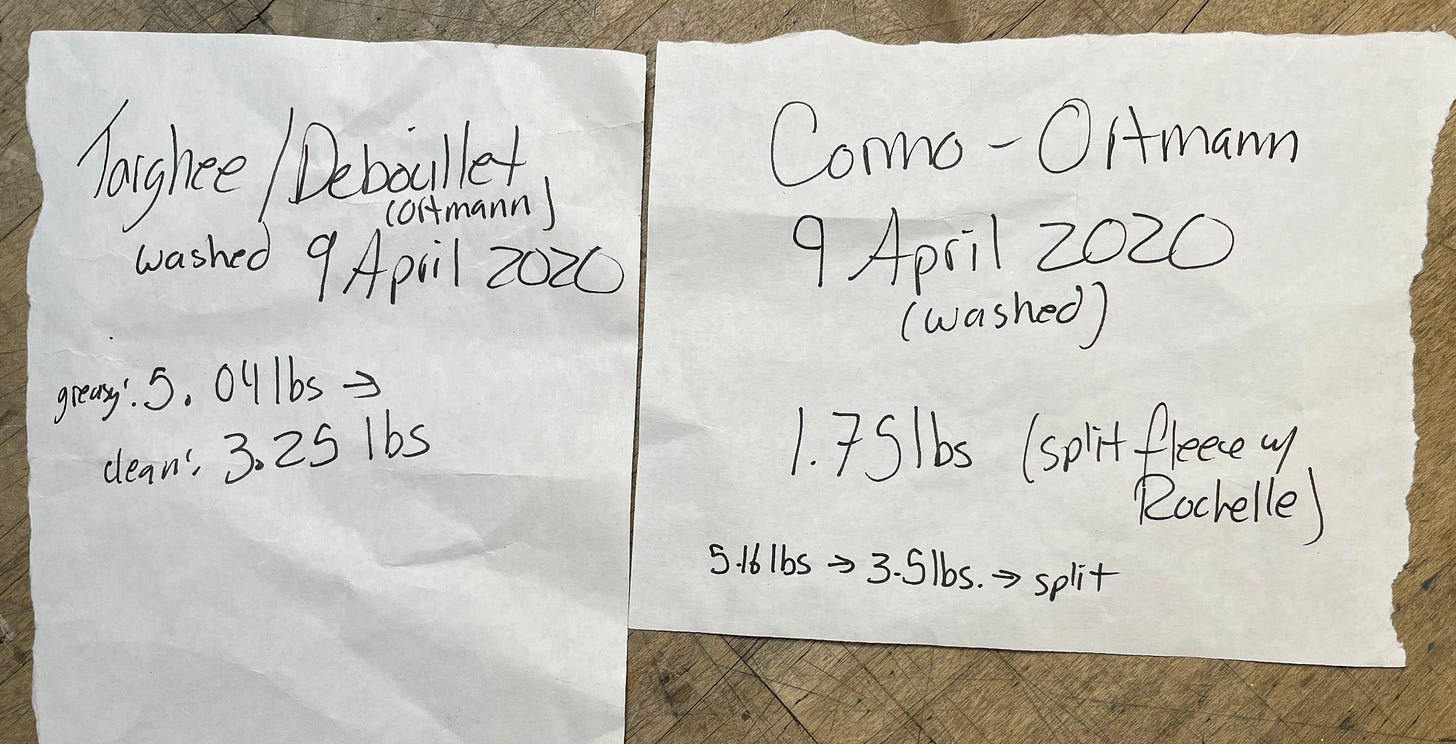 Targhee/Debouillet
(Ortmann)
washed 9 April 2020
greasy: 5.04 lbs →
clean: 3.25 lbs
Cormo - Ortmann
9 April 2020
(washed)
1.75 lbs (split fleece w/
Rochelle)
5.16 lbs → 3.5 lbs. → split